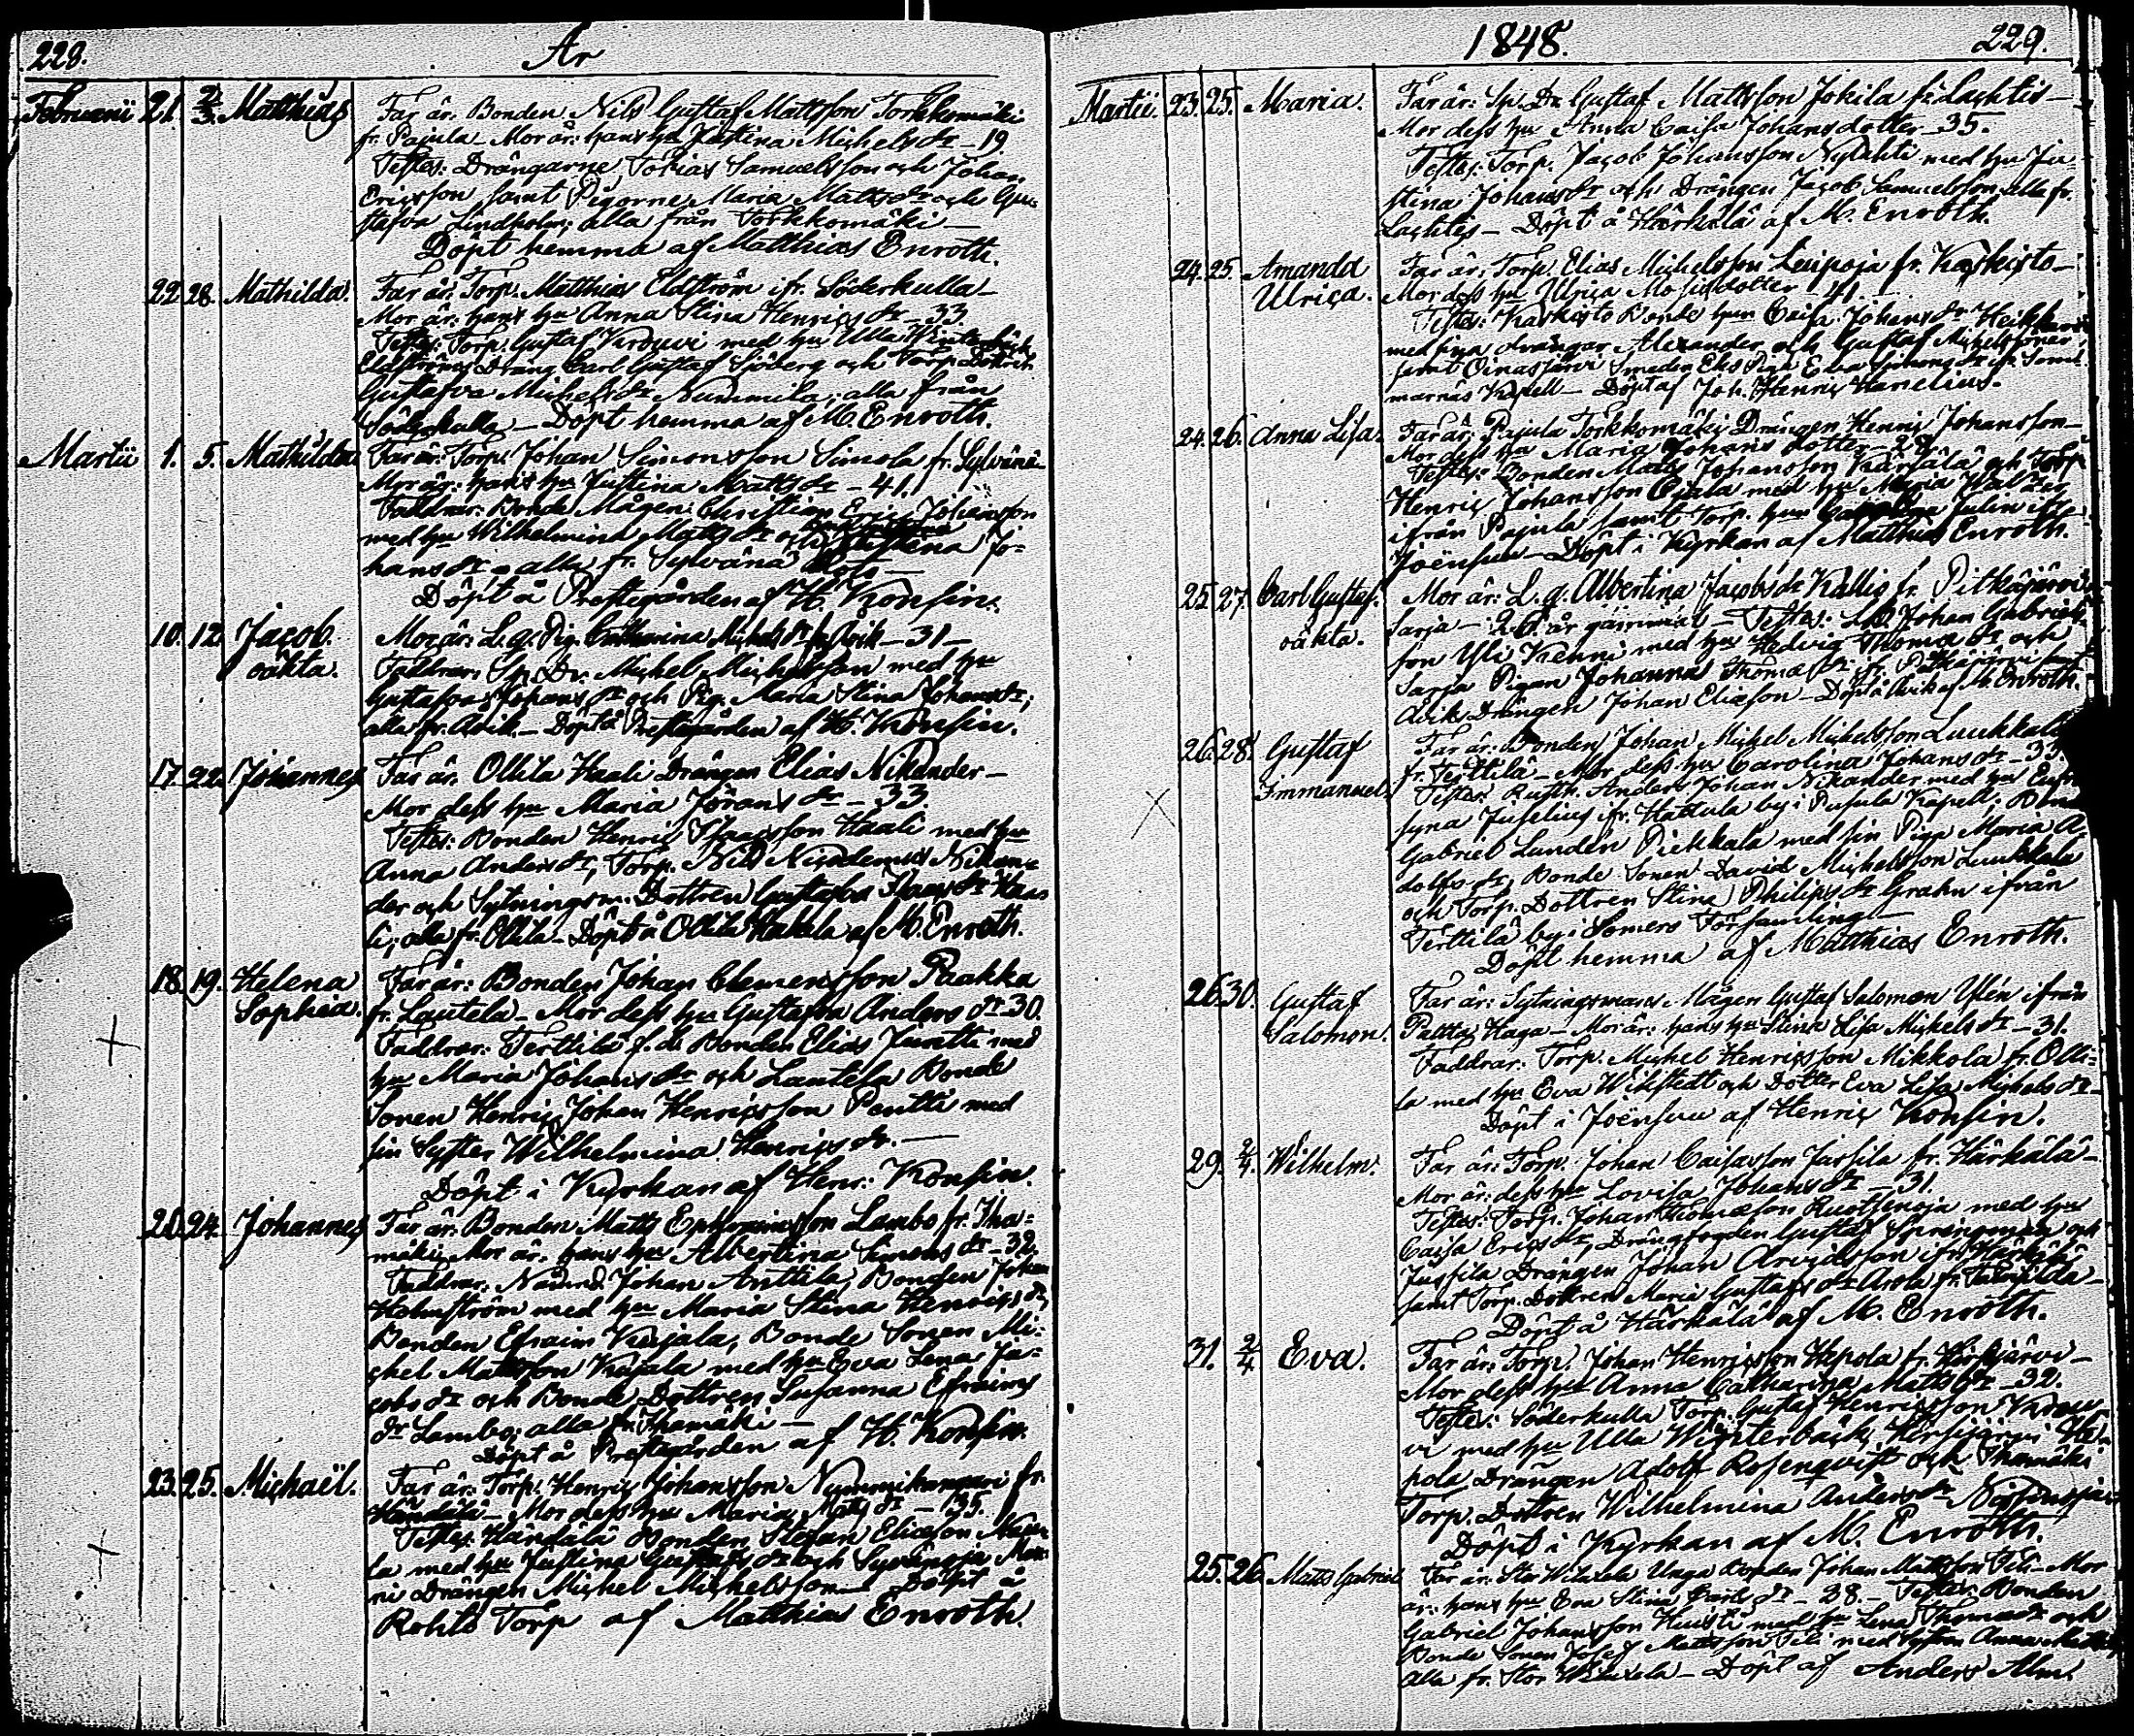 228. År
Februarii 21. 2/3. Matthias Far är. Bonden Nils Gustaf Mattsson Torkkomäki
fr. Pajula – Mor är: hans hu Justina Michels dr – 19
Testes: Drängarne Tobias Samuelsson och Johan
Ericsson samt Pigorne Maria Matts dr och Gu-
stafva Lindholm; alla från Torkkomäki –
Döpt hemma af Matthias Enroth.
22. 28. Mathilda. Far är. Torp. Matthias Eldström ifr. Söderkulla –
Mor är: hans hu Anna Stina Henrics dr – 33
Testes: Torp. Gustaf Krouvi med hu Ulla
Eldströms Dräng Carl Gustaf Sjöberg och Torp. Dottren
Gustafva Michels dr Nummila; alla från
Söderkulla – Döpt hemma af M. Enroth.
Martii 1. 5. Mathilda Far är: Torp. Johan Simonsson Simola fr. Sylvänä
Mor är: hans hu Justina Matts dr – 41.
Faddrar: Bonde Mågen Christian Johansson
med hu Wilhelmina Matts dr och Jo-
hans dr – alla fr. Sylvänä
Döpt å Prestegården af H. Konsin.
10. 12. Jacob Mor är: L. q. Pig. Catharina Michels dr fr. Åvik – 31 –
oäkta. Faddrar: Sp. Dr. Michel Michelsson med hu
Gustafva Johans dr och Pig. Maria Stina Johans dr;
alla fr. Åvik. – Döpt å Prestegården af H. Konsin.
17. 22. Johannes Far är. Ollila Haali Drängen Elias Nikander –
Mor dess hu Maria Jörans dr – 33.
Testes: Bonden Henric Isaacsson Haali med hu
Anna Anders dr, Torp. Nils Nicodemus Nikan-
der och Sytningsm. Dottren Gustafva Isaacs dr Haa
li; alla fr. Ollila – Döpt å Ollila Hakala af M. Enroth.
18. 19. Helena Far är: Bonden Johan Clemensson Paakka
Sophia. fr. Lautela – Mor dess hu Gustafva Anders dr 30.
Faddrar: Terttilä f. d. Bonden Elias Juntti med
hu Maria Johans dr och Lautela Bonde
Sonen Henric Johan Henricsson Pentti med
sin Syster Wilhelmina Henrics dr. –
Döpt i Kyrkan af Henr: Konsin.
20. 24. Johannes Far är. Bonden Matts Ephraimsson Lambo fr. Iha-
mäki, Mor är. hans hu Albertina Simons dr – 32.
Faddrar. Nämnd. Johan Anttila, Bonden Johan
Holmström med hu Maria Stina Henrics dr,
Bonden Efraim Kujala, Bonde Sonen Mi-
chel Mattsson Kujala med hu Eva Lena Ja-
cobs dr och Bonde Dottren Susanna Efraims
dr Lambo; alla fr. Ihamäki –
Döpt å Prestegården af H. Konsin.
23. 25. Michaël. Far är. Torp. Henric Johansson fr.
Händälä – Mor dess hu Maria Matts dr – 35.
Testes: Händälä Bonden Stefan Eliasson
la med hu Justina Gustafs dr och
ni Drängen Michel Michelsson – Döpt å
Rohto Torp af Matthias Enroth.
1848. 229.
Martii. 23. 25. Maria. Far är: Sp. Dr. Gustaf Mattsson Jokila fr. Lachtis –
Mor dess hu Anna Caisa Johansdotter – 35.
Testes: Torp. Jacob Johansson Nylahti med hu Ju-
stina Johans dr och Drängen Jacob Samuelsson, alla fr.
Lachtis – Döpt å Härkälä af M. Enroth.
24. 25. Amanda Far är. Torp. Elias Michelsson Leipoja fr. Kaskisto –
Ulrica. Mor dess hu Ulrica Mosisdotter 41 –
Testes: Kaskisto Bonde hun Caisa Johans dr Heikkari
med sina drängar Alexander och Gustaf Michelssöner,
samt Oinasjärvi Smeden Eks Piga Eva Simons dr ifr. Som-
marnäs Kapell – Döpt af Joh. Henric Hanelius.
24. 26. Anna Lisa. Far är. Pajula Torkkomäki Drängen Henric Johansson –
Mor dess hu Maria Johans dotter – 28.
Testes: Bonden Matts Johansson Kärsälä och Torp
Henric Johansson Ojala med hu Maria
ifrån Pajula samt Torp. hun Julin ifr.
Joënsuu – Döpt i Kyrkan af Matthias Enroth.
25. 27. Carl Gustaf. Mor är: L. q. Albertina Jacobs dr Kallis fr. Pitkäjärvi
oäkta. Sarja – 26. år gammal – Testes: Johan Gabriels-
son Yli Kenni med hu Hedvig Thomæ dr och
Sarja Pigan Johanna Thomæ dr ifr. Pitkäjärvi
Åvik Drängen Johan Eliasson – Döpt å Åvik af M. Enroth.
26. 28. Gustaf Far är: Bonden Johan Michel Michelsson Luukkala
Immanuel. fr. Terttilä – Mor dess hu Carolina Johans dr – 33.
Testes: Rusth. Anders Johan Nikander med hu
syna Juselius ifr. Hattula by i Pusula Kapell;
Gabriel Lundén Piekkala med sin Piga Maria A-
dolfs dr, Bonde Sonen David Michelsson Luukkala
och Torp. Dottren Stina Philips dr Grahn ifrån
Terttilä by i Somero Församling –
Döpt hemma af Matthias Enroth.
26. 30. Gustaf Far är: Sytningsmans Mågen Gustaf Salomon Ylén ifrån
Salomon. Paltta Haga – Mor är: hans hu Stina Lisa Michels dr – 31.
Faddrar: Torp. Michel Henricsson Mikkola fr. Olli-
la med hu Eva Wikstedt och Dotter Eva Lisa Michels dr –
Döpt i Joënsuu af Henric Konsin.
29. 2/4. Wilhelm. Far är: Torp. Johan Caisasson Jussila fr. Härkälä –
Mor är: dess hu Lovisa Johans dr – 31.
Testes: Torp. Johan Thomæson Ruotsinoja med hu
Caisa Erics dr, Drängfogden Gustaf och
Jussila Drängen Johan Arvidsson ifr. Härkälä
samt Torp. Dottren Maria Gustafs dr Arola fr.
Döpt å Härkälä af M. Enroth.
31. 2/4 Eva. Far är. Torp. Johan Henricsson Hepola fr. Hirsjärvi –
Mor dess hu Anna Catharina Matts dr – 32.
Testes: Söderkulla Torp. Gustaf Henricsson Krou-
vi med hu Ulla Winterbäck, Hirsjärvi He-
pola Drängen Adolf Rosenqvist och Ihamäki
Torp. Dottren Wilhelmina Anders dr
Döpt i Kyrkan af M. Enroth.
25. 26. Matts Gabriel Far är. Stor Wiluxela Unga Bonden Johan Mattsson Fili – Mor
är: hans hu Eva Stina Carls dr – 28. – Testes: Bonden
Gabriel Johansson med hu Lena Thomæ dr och
Bonde Sonen Josef Mattsson Fili med Systern Anna
Alla fr. Stor Wiluxela – Döpt af Anders Alm.